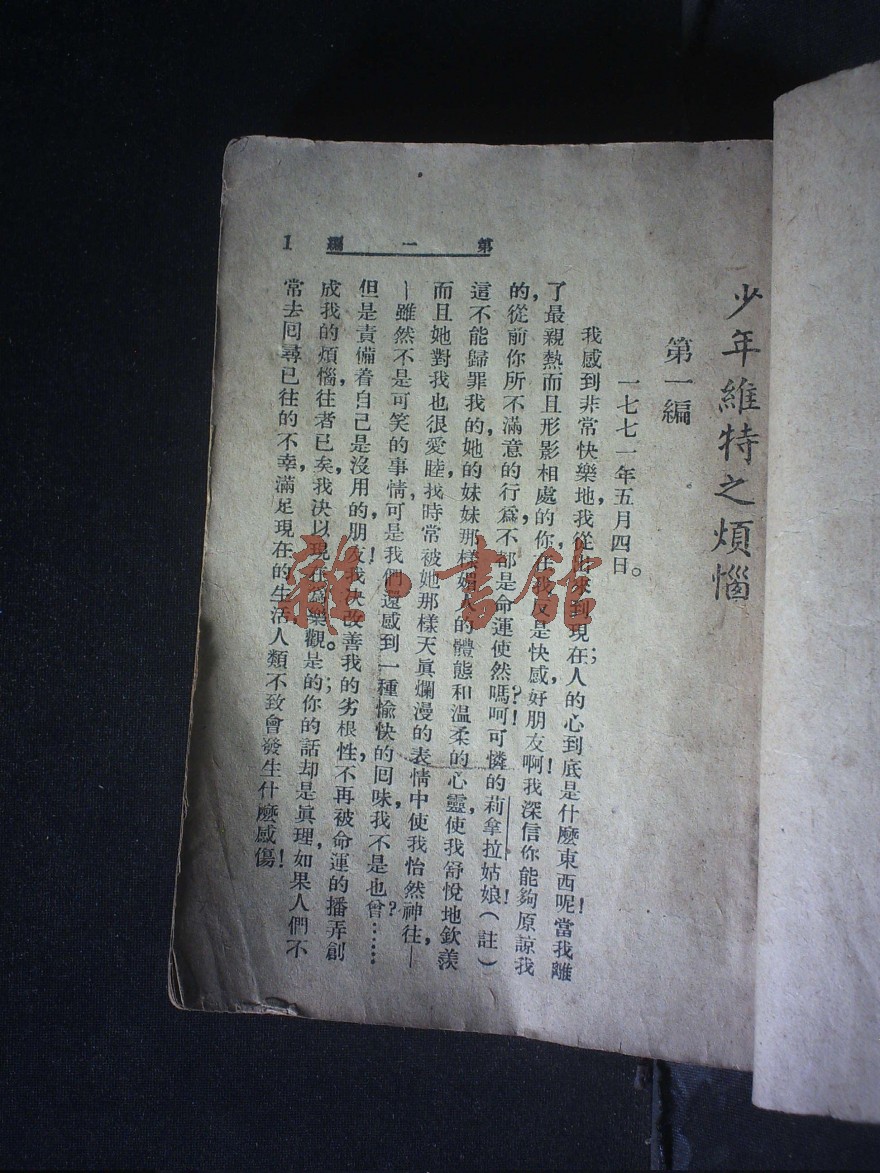 少年維特之煩惱
第一編
一七七一年五月四日。
我感到非常快樂地,我從來到現在;人的心到底是什麼東西呢!當我離
了最親熱而且形影相處的你,在我反是快感!好朋友啊我深信你能夠原諒我
的,從前你所不滿意的行爲,不都是命運使然嗎?!呵可憐的莉拿拉姑娘!(註)
這不能歸罪我的,她的妹妹那樣媚人的體態和温柔的心靈,使我舒悅地欽羨,
而且她對我也很愛睦,我時常被她那樣天眞爛漫的表情中使我怡然神往—
—雖然不是可笑的事情,可是我們還感到一種愉快的回味,我不是也曾?……
但是責備着自己是沒用的,朋友!我決改善我的劣根性,不再被命運的播弄創
成我的煩惱,往者已矣,我決以現在爲樂觀。是的;你的話却是眞理,如果人們不
常去回尋已往的不幸,滿足現在的生活,人類不致會發生什麼感傷!
第一編
1
雜·書館